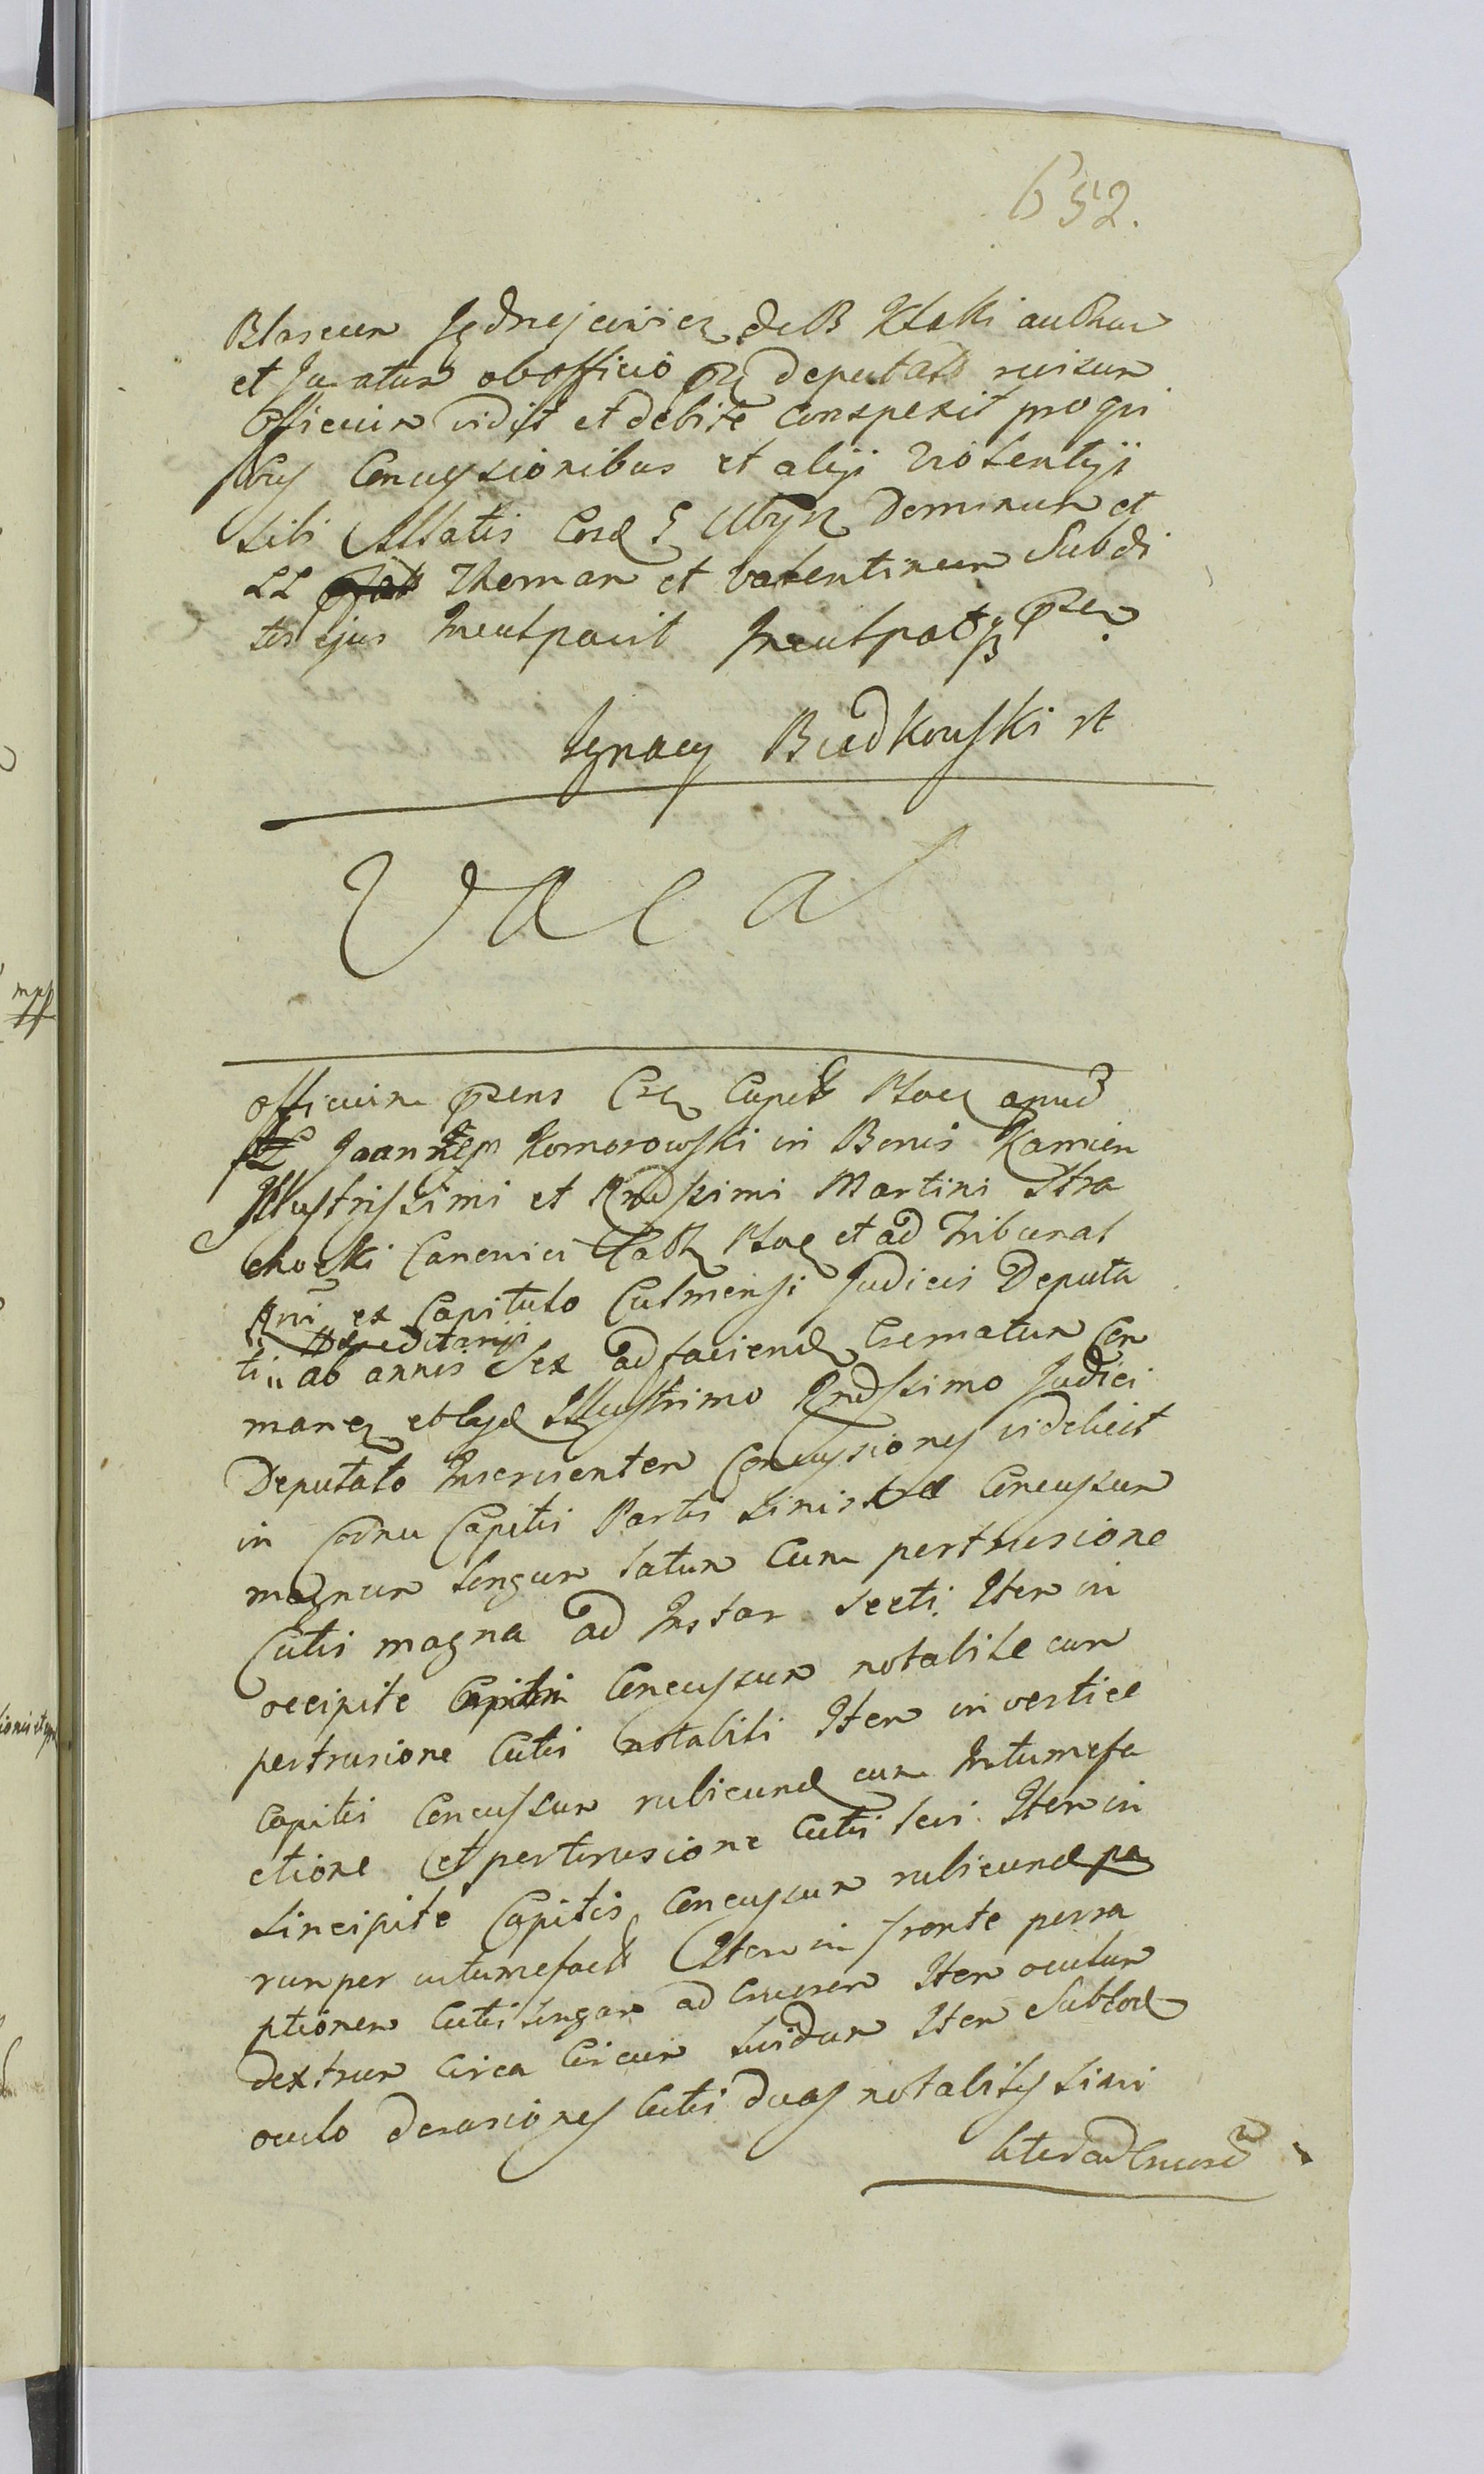 652.
Blasium Jędrzejewicz de B Kłaki authum
et Juratum ab officio deputat visum
Officium vidit et debite conspexit pro qui
bus Concussionibus et alijs violentijs
sibi illatis eosd Dominum et
LL Thomam et Valentinum Subdi
tos ejus Inculpavit Inculpatq prsen
Ignacy Budkowski
Vacat
Officium prsens Cap apud
Joan Nep Komorowski in Bonis Kamien
Illustrissimi et Rndssimi Martini Stra
chocki Canonici et ad Tribunal
Rni ex Capitulo Culmensi Judicis Deputa
Hereditarij
ti " ab annis Sex ad faciend Crematum Com
maneń Illustrimo Rndssimo Judici
Deputato Inservientem Concussiones videlicet
in Cornu Capitis Partis sinistra Concussum
magnum longum latum cum pertrusione
Cutis magna ad Instar secti. Item in
occipite Concussum notabile cum
pertrusione Cutis notabili Item in vertice
Capitis Concussum rubicund cum Intumefa
ctione et pertrusione Cutis levi Item in
sincipite Capitis Concussum rubicund pa
rumper intumefact Item in fronte perra
ptionem Cutis longam ad Cruorem Item oculum
dextrum circa circum lividum Item sub eod
oculo derasiones Cutis duas notabiles simi
liter ad Cruorem